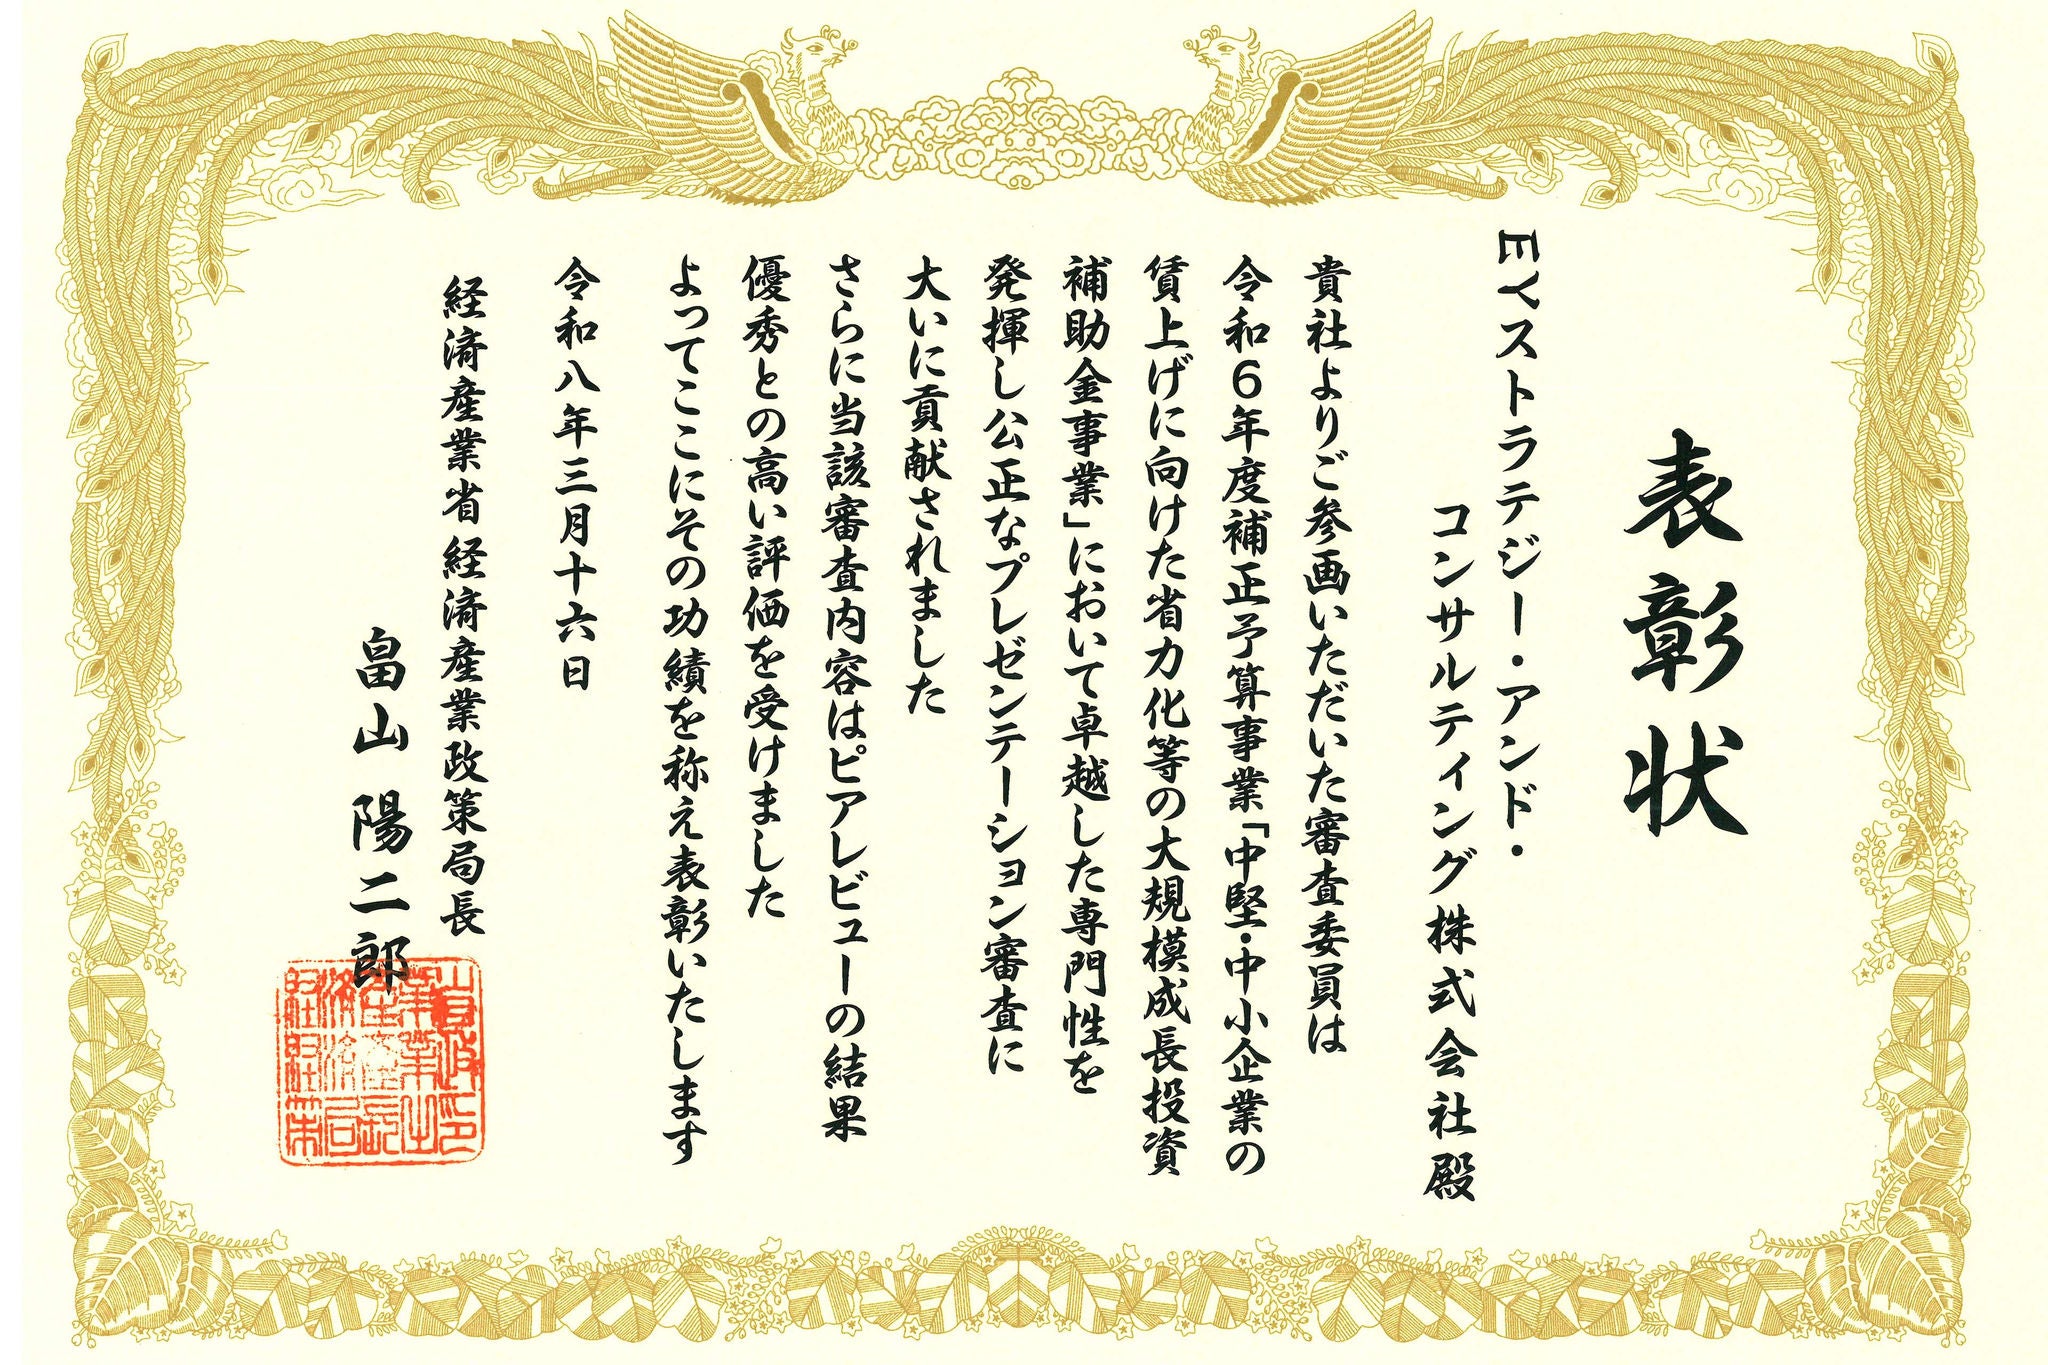 表彰状
EYストラテジー・アンド・
コンサルティング株式会社殿
貴社よりご参画いただいた審査委員は
令和6年度補正予算事業「中堅・中小企業の
賃上げに向けた省力化等の大規模成長投資
補助金事業」において卓越した専門性を
発揮し公正なプレゼンテーション審査に
大いに貢献されました
さらに当該審査内容はピアレビューの結果
優秀との高い評価を受けました
よってここにその功績を称え表彰いたします
令和八年三月十六日
経済産業省経済産業政策局長
畠山陽二郎